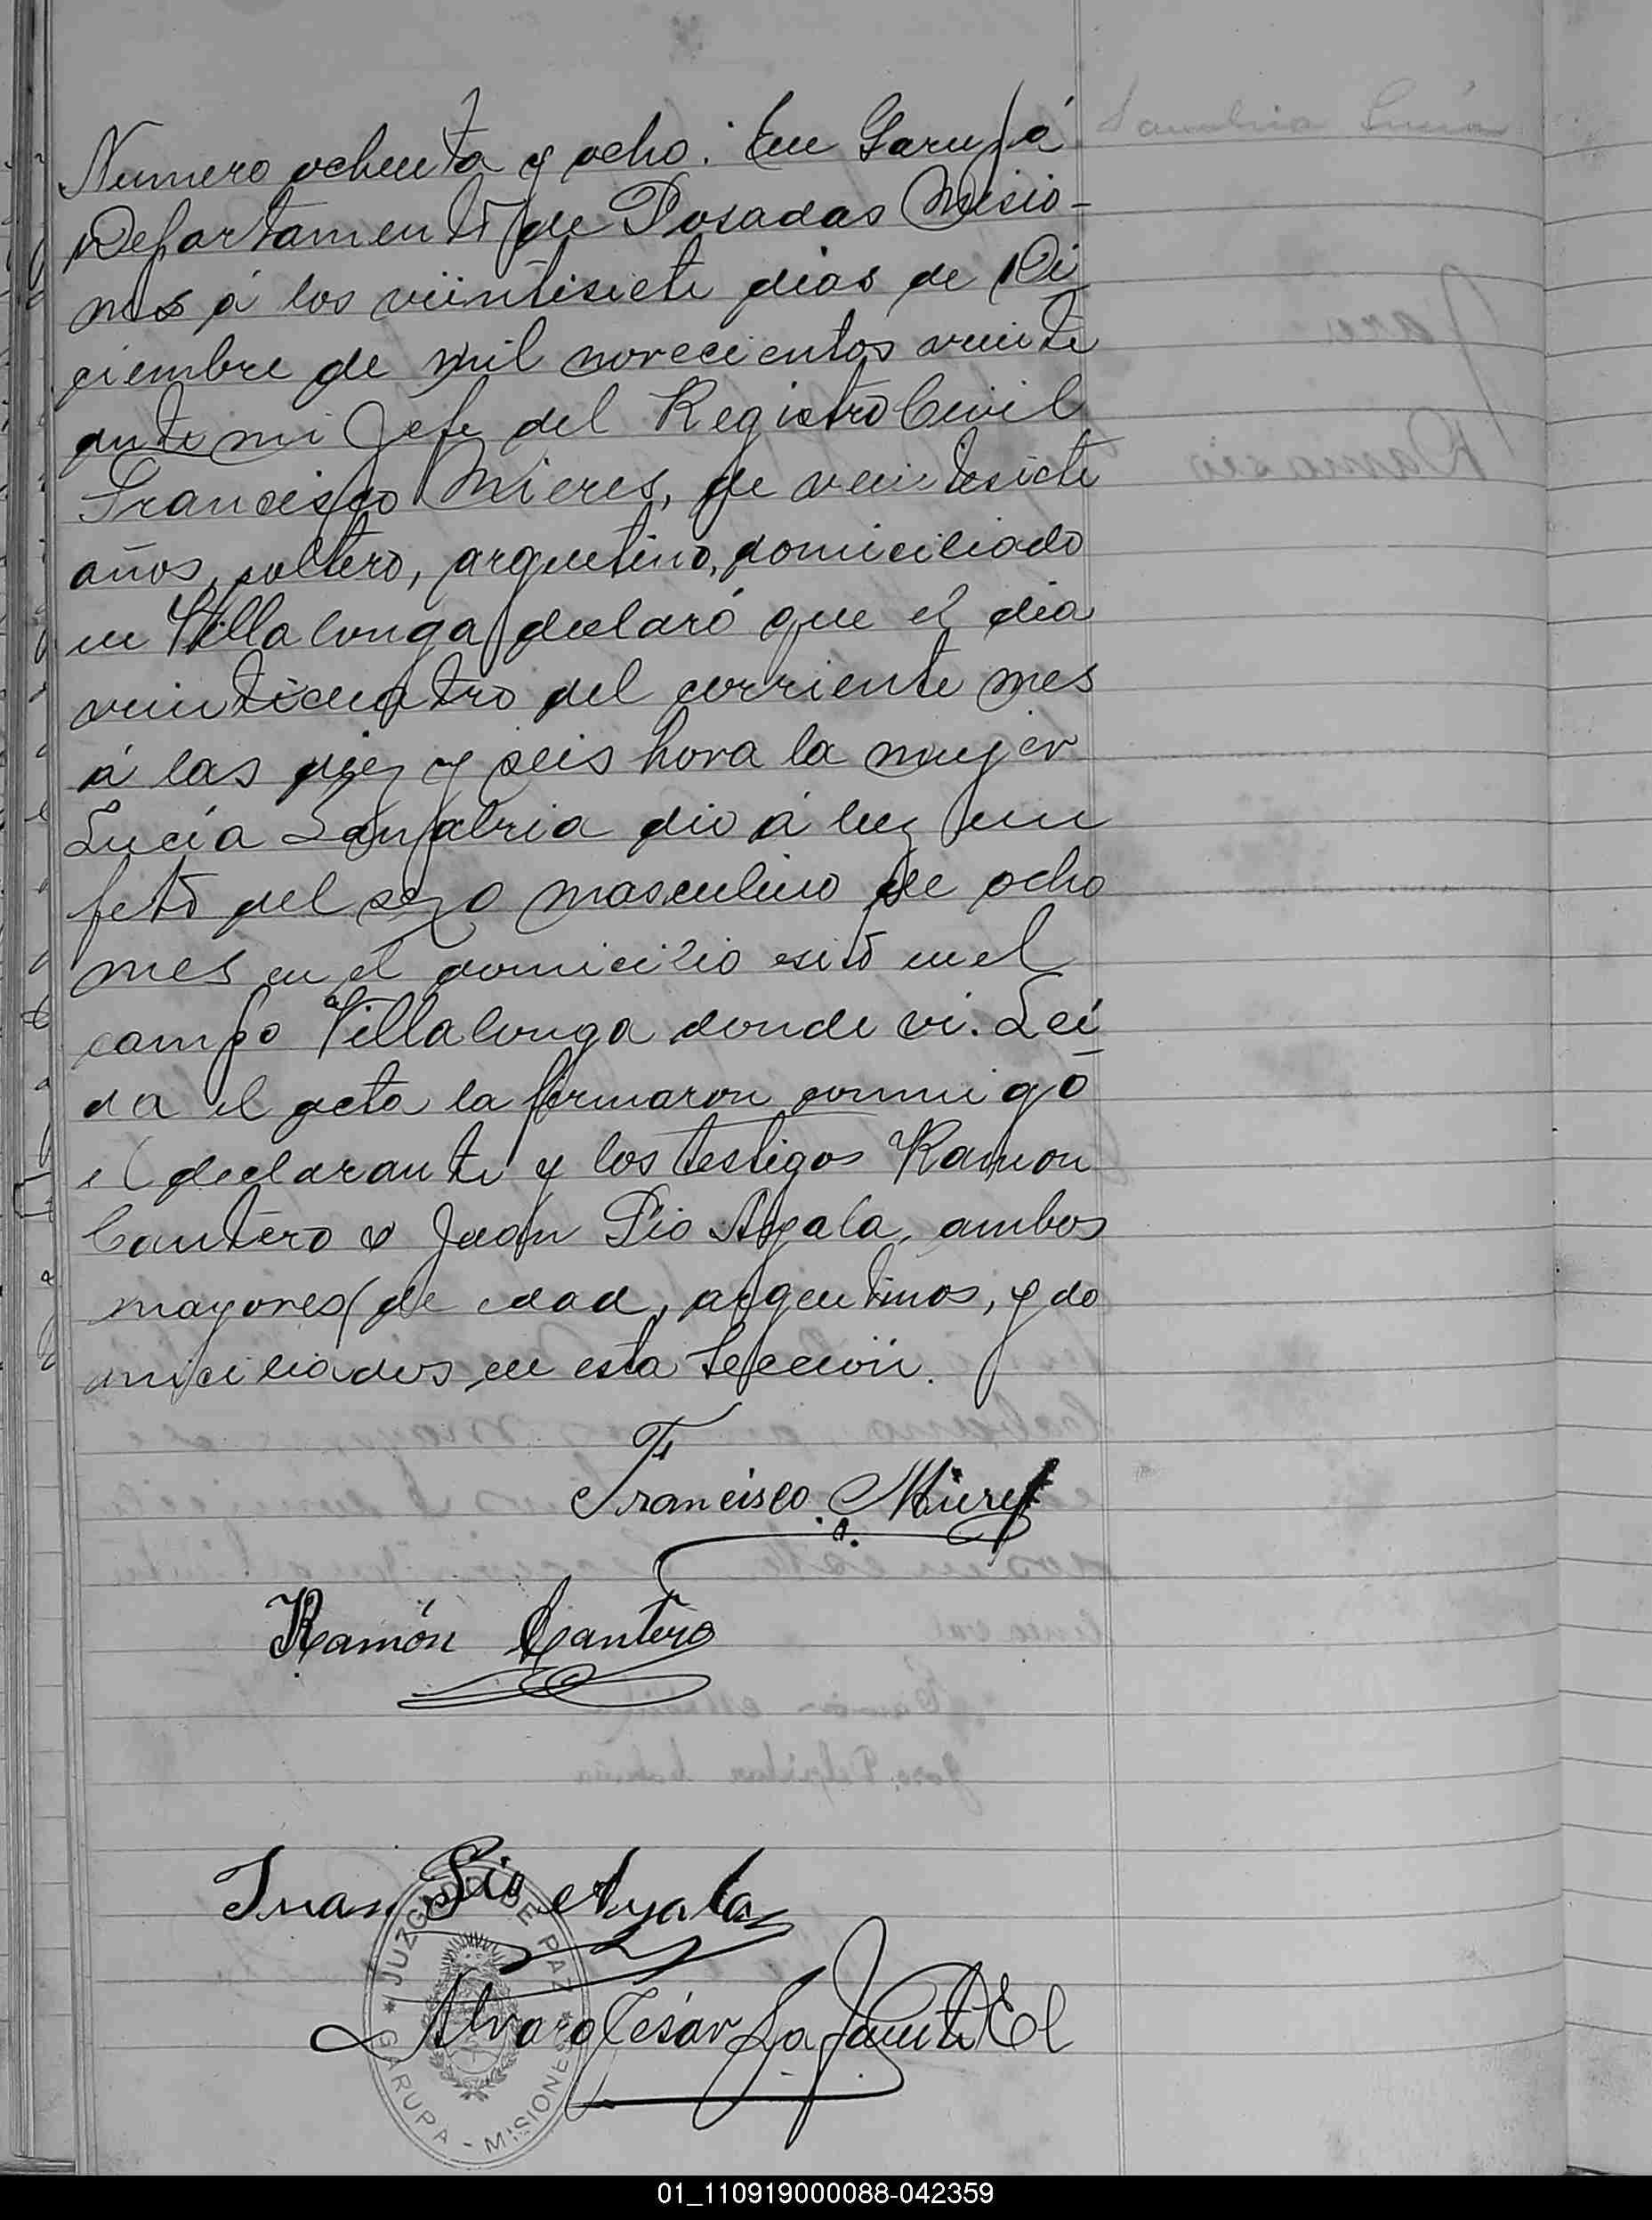 Numero ochenta y ocho. En Garupá
Departamento de Posadas Misio-
nes á los veintisiete dias de Di
ciembre de mil novecientos veinte
ante mi Jefe del Registro Civil
Francisco Mieres, de veintesiete
años, soltero, argentino, domiciliado
en Villalonga declaró que el dia
veinticuatro del corriente mes
á las diez y seis hora la mujer
Lucía dio á luz un
feto del sexo masculino de ocho
mes en el domicilio sito en el
campo Villalonga donde vi. Leí
da el acta la firmaron conmigo
el declarante y los testigos Ramon
Cantero y Juan Pio Ayala, ambos
mayores de edad, argentinos, y do
miciliados en esta Sección.
Francisco Mieres
Ramón Cantero
Juan Pio Ayala
Alvaro César
JUZGADO DE PAZ
GARUPA - MISIONES
01_110919000088-042359